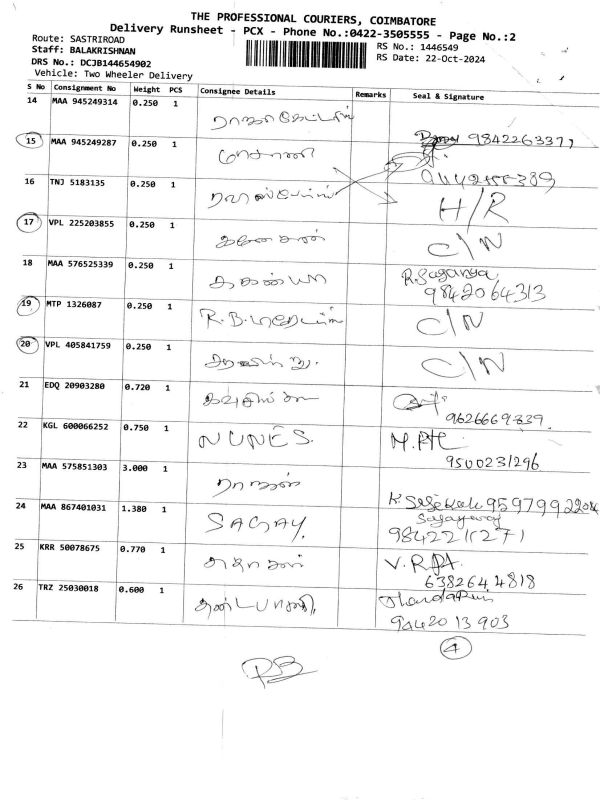 THE PROFESSIONAL COURIERS, COIMBATORE
Delivery Runsheet - PCX - Phone No.:0422-3505555 - Page No.:2
Route: SASTRIROAD
RS No.: 1446549
Staff: BALAKRISHNAN
RS Date: 22-Oct-2024
DRS No.: DCJB144654902
Vehicle: Two Wheeler Delivery
S No Consignment No Weight PCS Consignee Details Remarks Seal & Signature
14 MAA 945249314 0.250 1
9842263377
15 MAA 945249287 0.250 1
16 TNJ 5183135 0.250 1 H/R
17 VPL 225203855 0.250 1 கணேசன் C/N
18 MAA 576525339 0.250 1 சுகன்யா R.Suganya
9842064313
19 MTP 1326087 0.250 1 R.B. C/N
20 VPL 405841759 0.250 1 C/N
21 EDQ 20903280 0.720 1
9626669839
22 KGL 600066252 0.750 1 NUNES.
9500231296
23 MAA 575851303 3.000 1 ராகவன்
K. 9597992204
24 MAA 867401031 1.380 1 SAGAY.
9842211271
25 KRR 50078675 0.770 1 அசோகன்
6382644818
26 TRZ 25030018 0.600 1 தண்டபாணி
9442013903
4